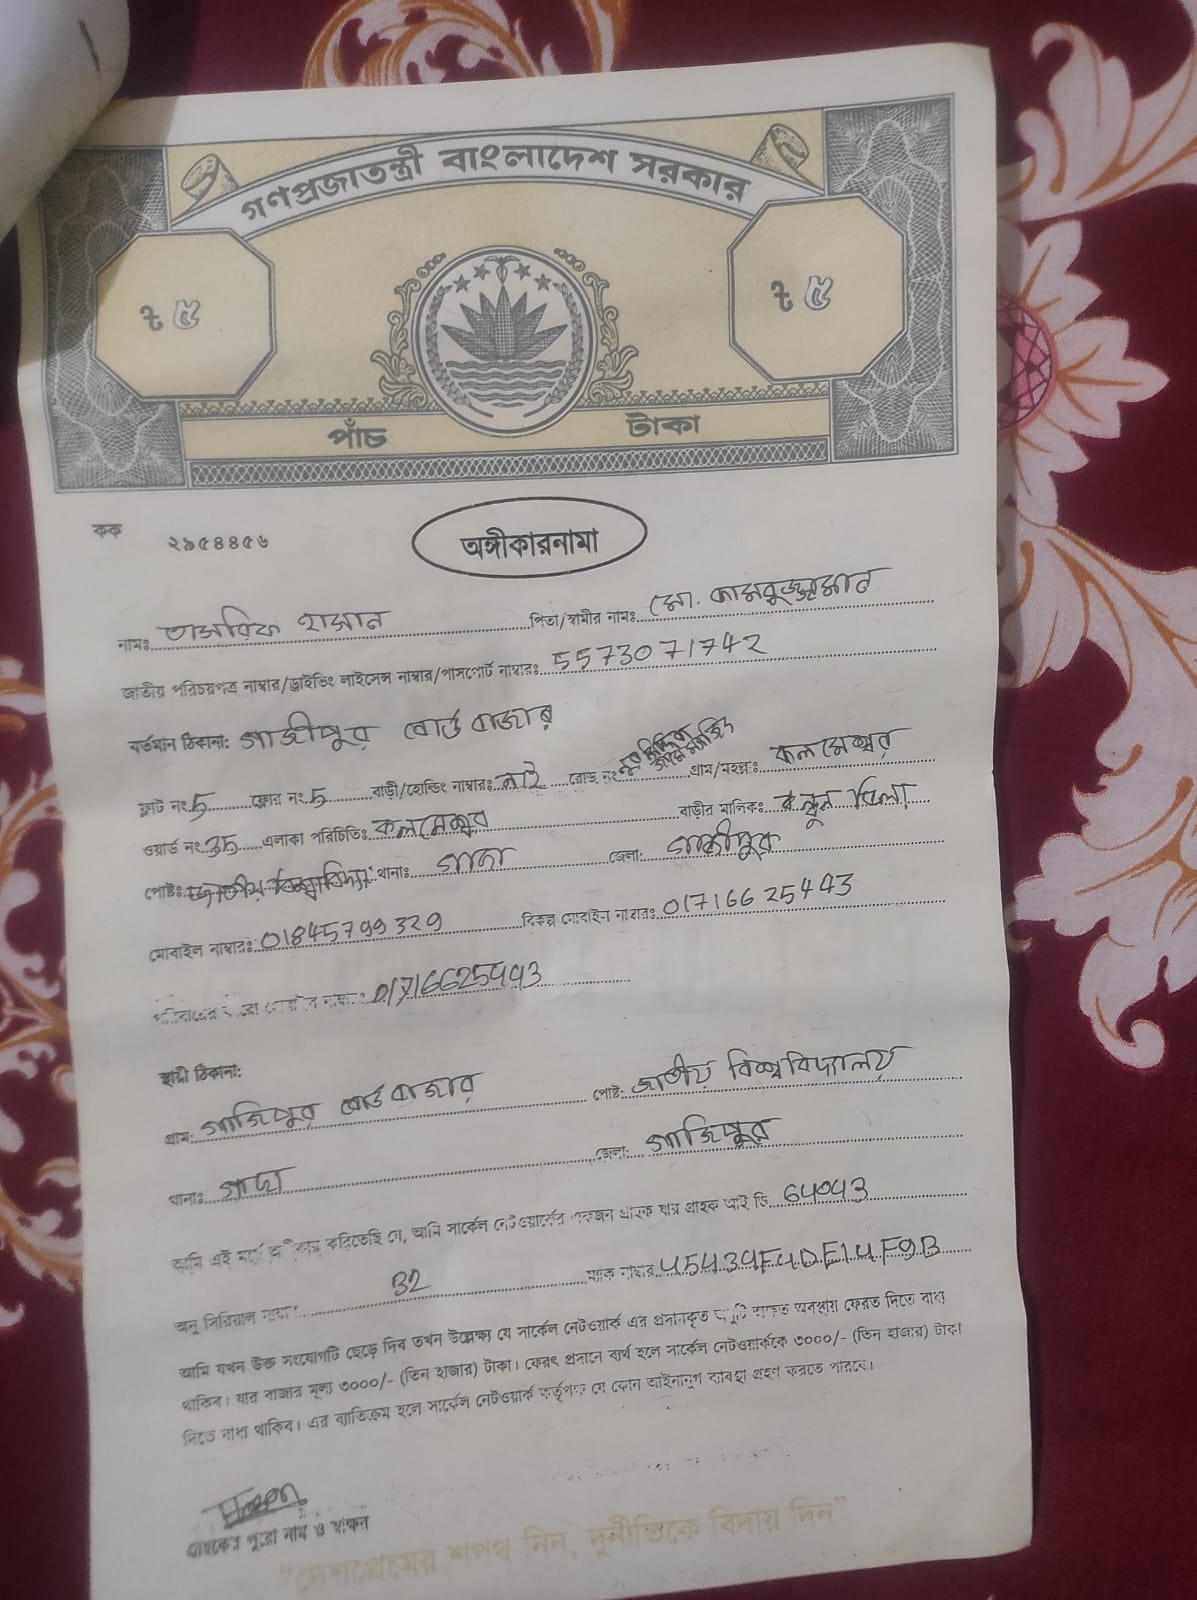 গণপ্রজাতন্ত্রী বাংলাদেশ সরকার
৳ ৫ ৳ ৫
পাঁচ টাকা
কক ২৯৫৪৪৫৬
অঙ্গীকারনামা
নামঃ তাসরিফ হাসান পিতা/স্বামীর নামঃ মো. কামরুজ্জামান
জাতীয় পরিচয়পত্র নাম্বার/ড্রাইভিং লাইসেন্স নাম্বার/পাসপোর্ট নাম্বারঃ 5573071742
বর্তমান ঠিকানা: গাজীপুর বোর্ড বাজার
ফ্লাট নং 5 ফ্লোর নং 5 বাড়ী/হোল্ডিং নাম্বারঃ নাই রোড নং জামে মসজিদ গ্রাম/মহল্লাঃ কলমেশ্বর
ওয়ার্ড নং 35 এলাকা পরিচিতিঃ কলমেশ্বর বাড়ীর মালিকঃ ভিলা
পোষ্টঃ জাতীয় বিশ্ববিদ্যা: থানাঃ গাছা জেলা: গাজীপুর
মোবাইল নাম্বারঃ 01845799329 বিকল্প মোবাইল নাম্বারঃ 01716625443
নাম্বারঃ 01716625443
স্থায়ী ঠিকানা:
গ্রাম: গাজিপুর বোর্ড বাজার পোষ্ট: জাতীয় বিশ্ববিদ্যালয়
থানাঃ গাছা জেলা: গাজিপুর
আমি এই মর্মে অঙ্গীকার করিতেছি যে, আমি সার্কেল নেটওয়ার্কের একজন গ্রাহক যার গ্রাহক আই ডি 64043
অনু সিরিয়াল নাম্বার 32 ম্যাক নাম্বার 45434F4DF14F9B
আমি যখন উক্ত সংযোগটি ছেড়ে দিব তখন উল্লেক্ষ্য যে সার্কেল নেটওয়ার্ক এর প্রদানকৃত অবস্থায় ফেরত দিতে বাধ্য
থাকিব। যার বাজার মূল্য ৩০০০/- (তিন হাজার) টাকা। ফেরৎ প্রদানে ব্যর্থ হলে সার্কেল নেটওয়ার্ককে ৩০০০/- (তিন হাজার) টাকা
দিতে বাধ্য থাকিব। এর ব্যতিক্রম হলে সার্কেল নেটওয়ার্ক কর্তৃপক্ষ যে কোন আইনানুগ ব্যবস্থা গ্রহণ করতে পারবে।
গ্রাহকের পুরো নাম ও স্বাক্ষর
"দেশপ্রেমের শপথ নিন, দুর্নীতিকে বিদায় দিন"